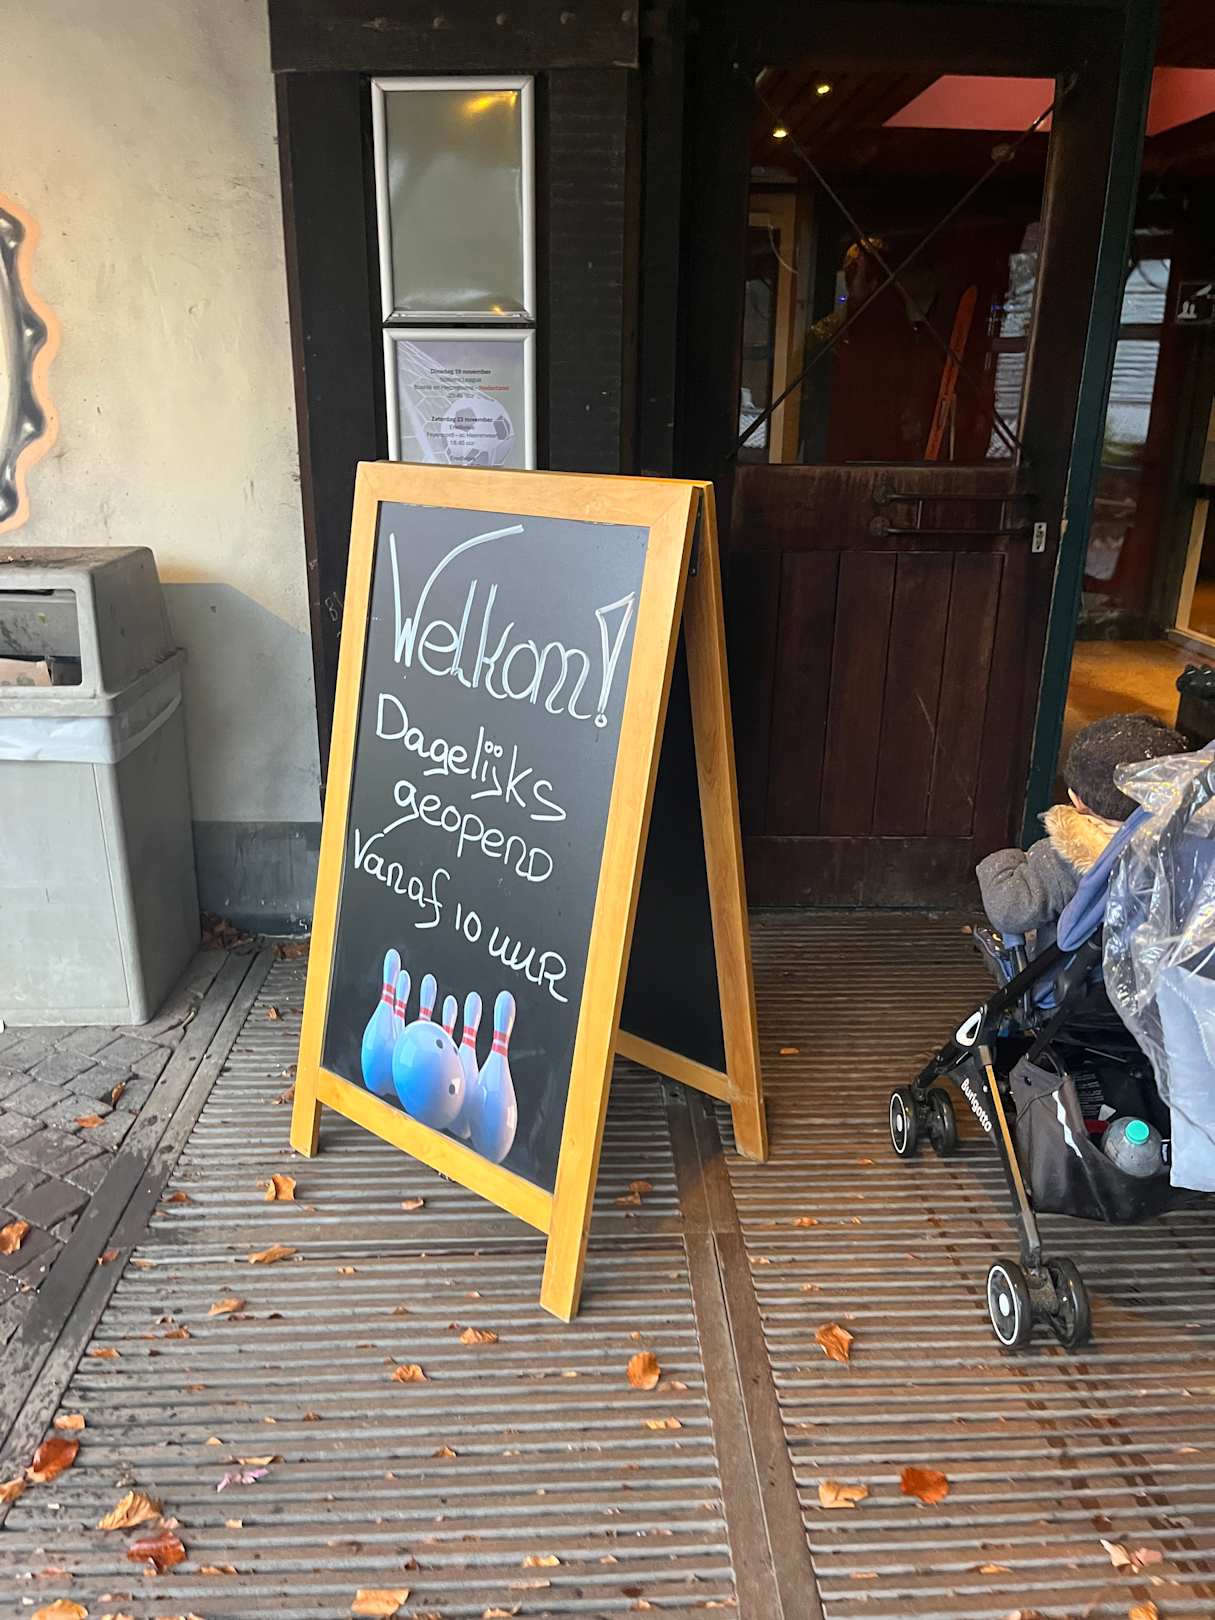 Dinsdag 19 november
Nations League
Bosnië en Herzegovina - Nederland
20:45 uur
Zaterdag 23 november
Eredivisie
Feyenoord - sc Heerenveen
18:45 uur
Eredivisie
Welkom!
Dagelijks
geopend
Vanaf 10 uur
Burigotto